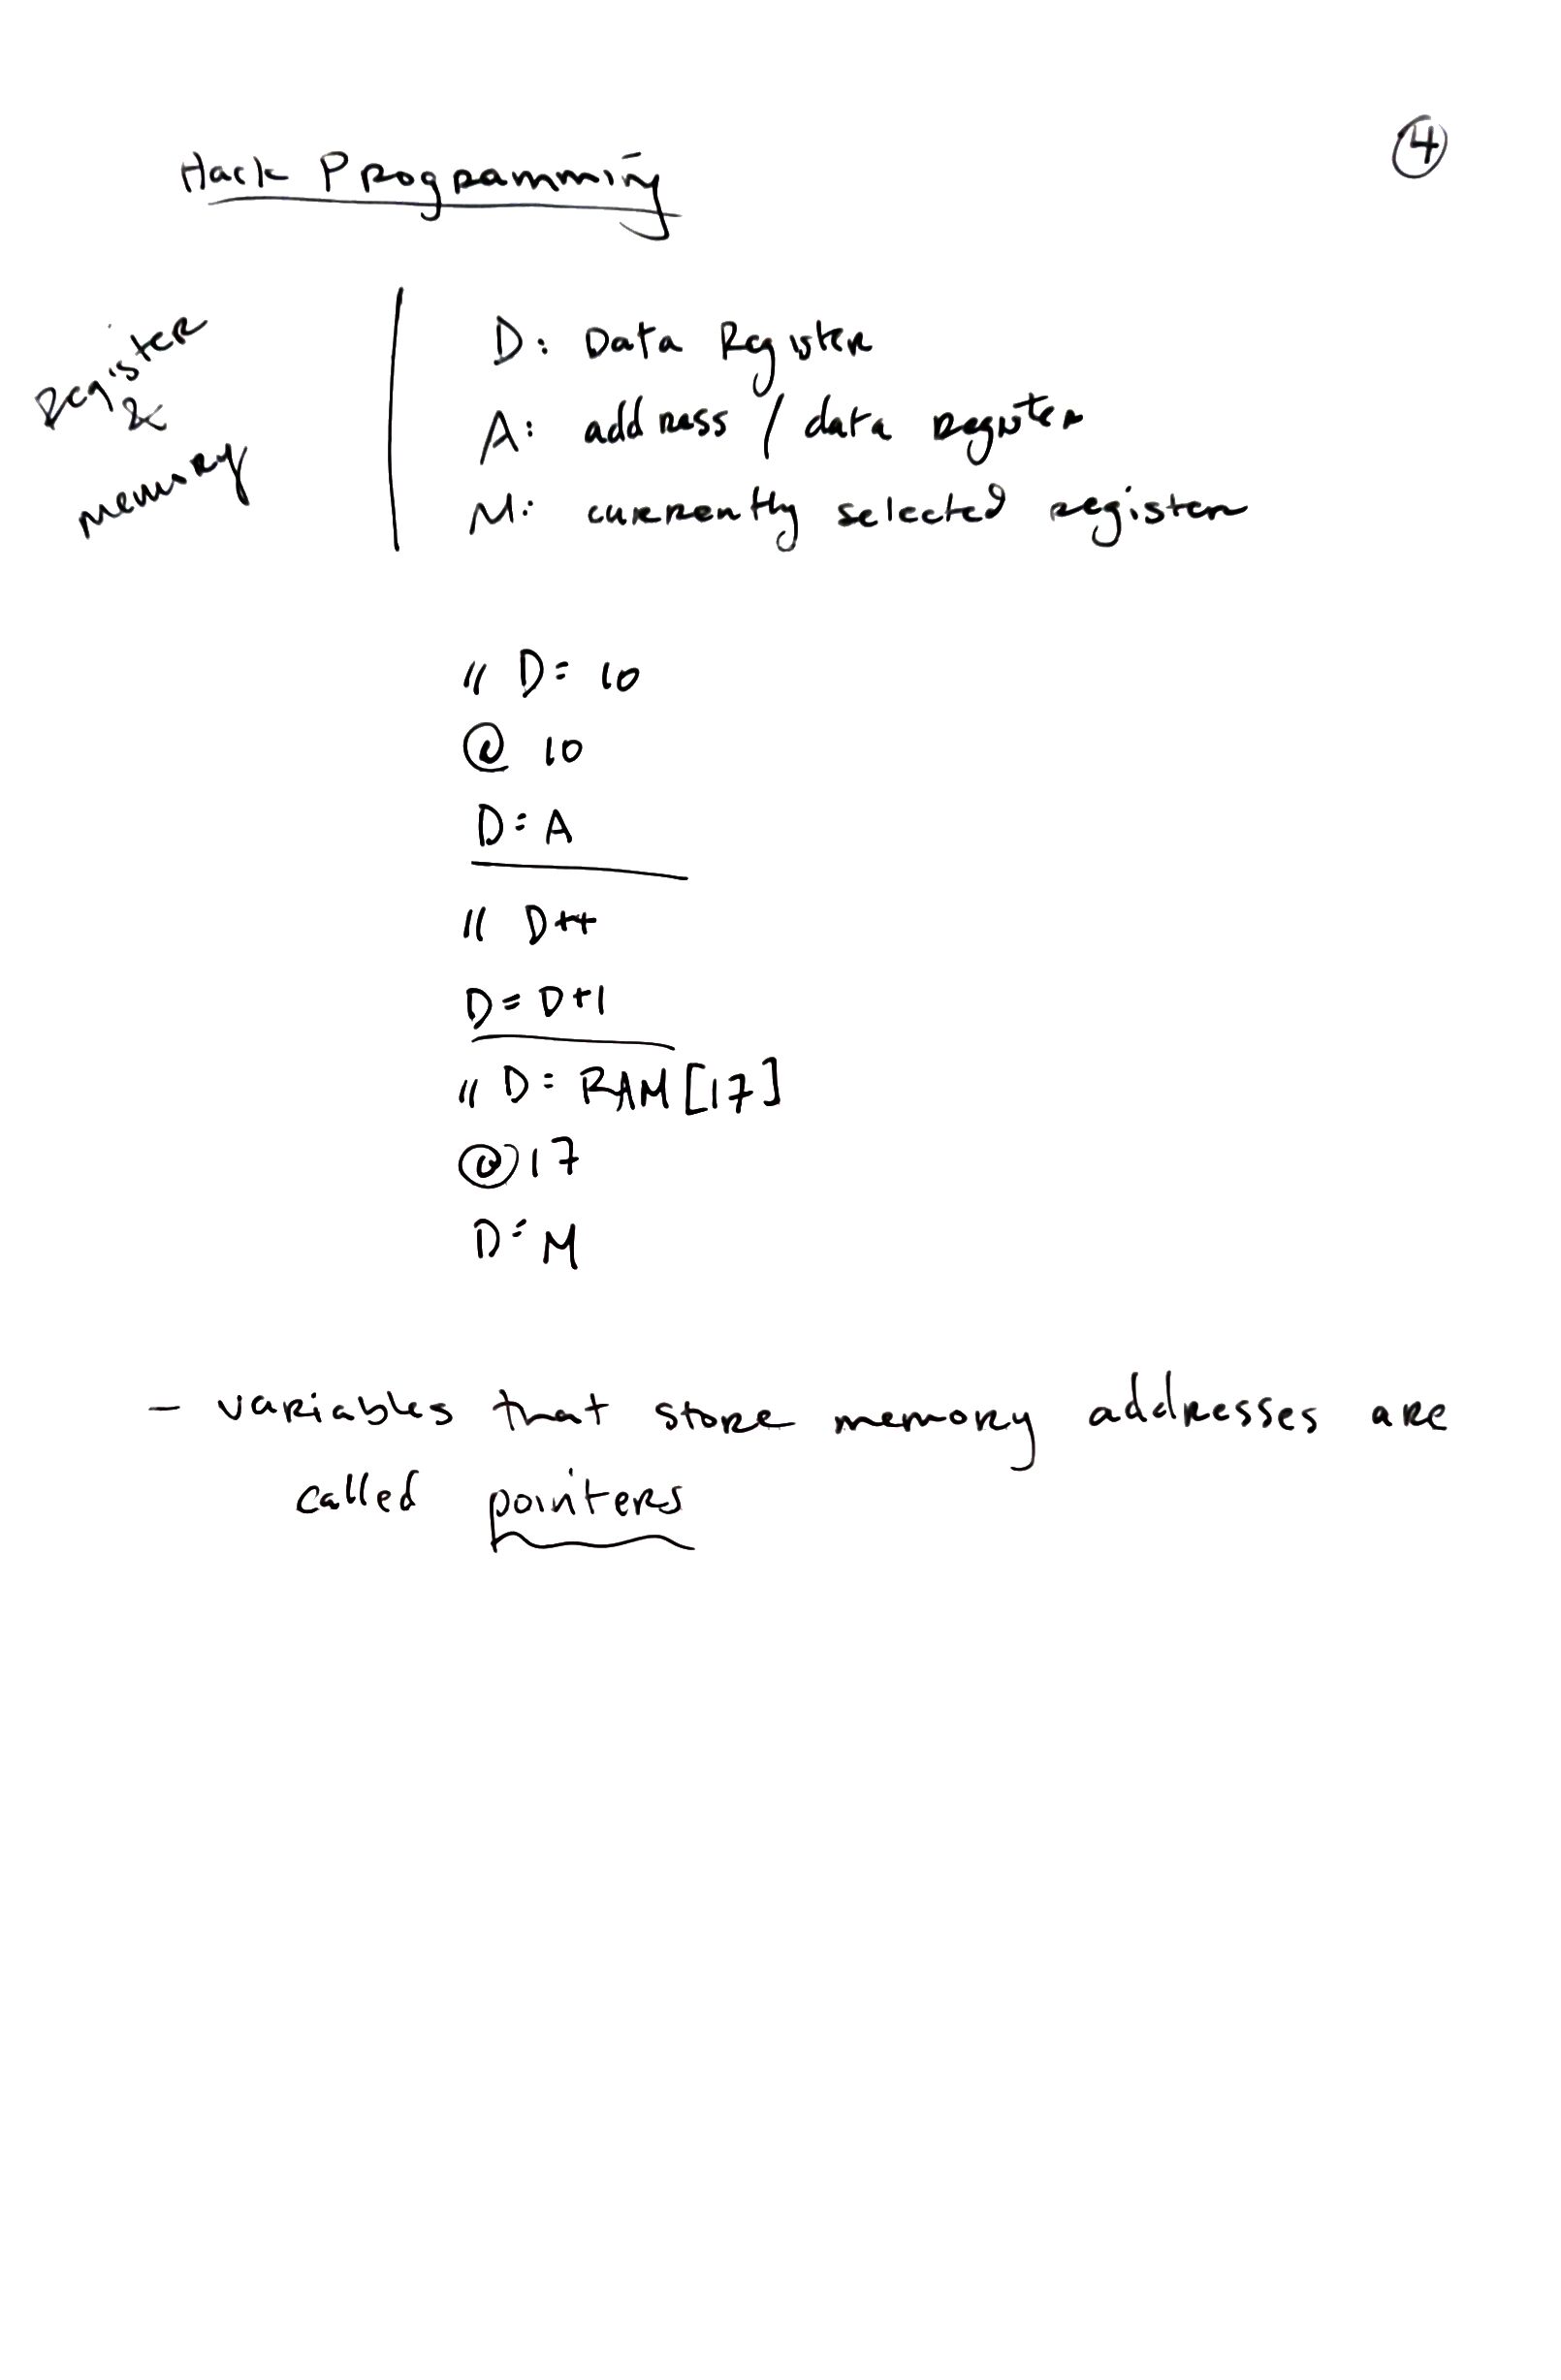 Hack Programming
4
Register
&
memory
D: Data Register
A: address / data register
M: currently selected register
// D = 10
@ 10
D = A
// D++
D = D+1
// D = RAM [17]
@ 17
D = M
- variables that store memory addresses are
called pointers